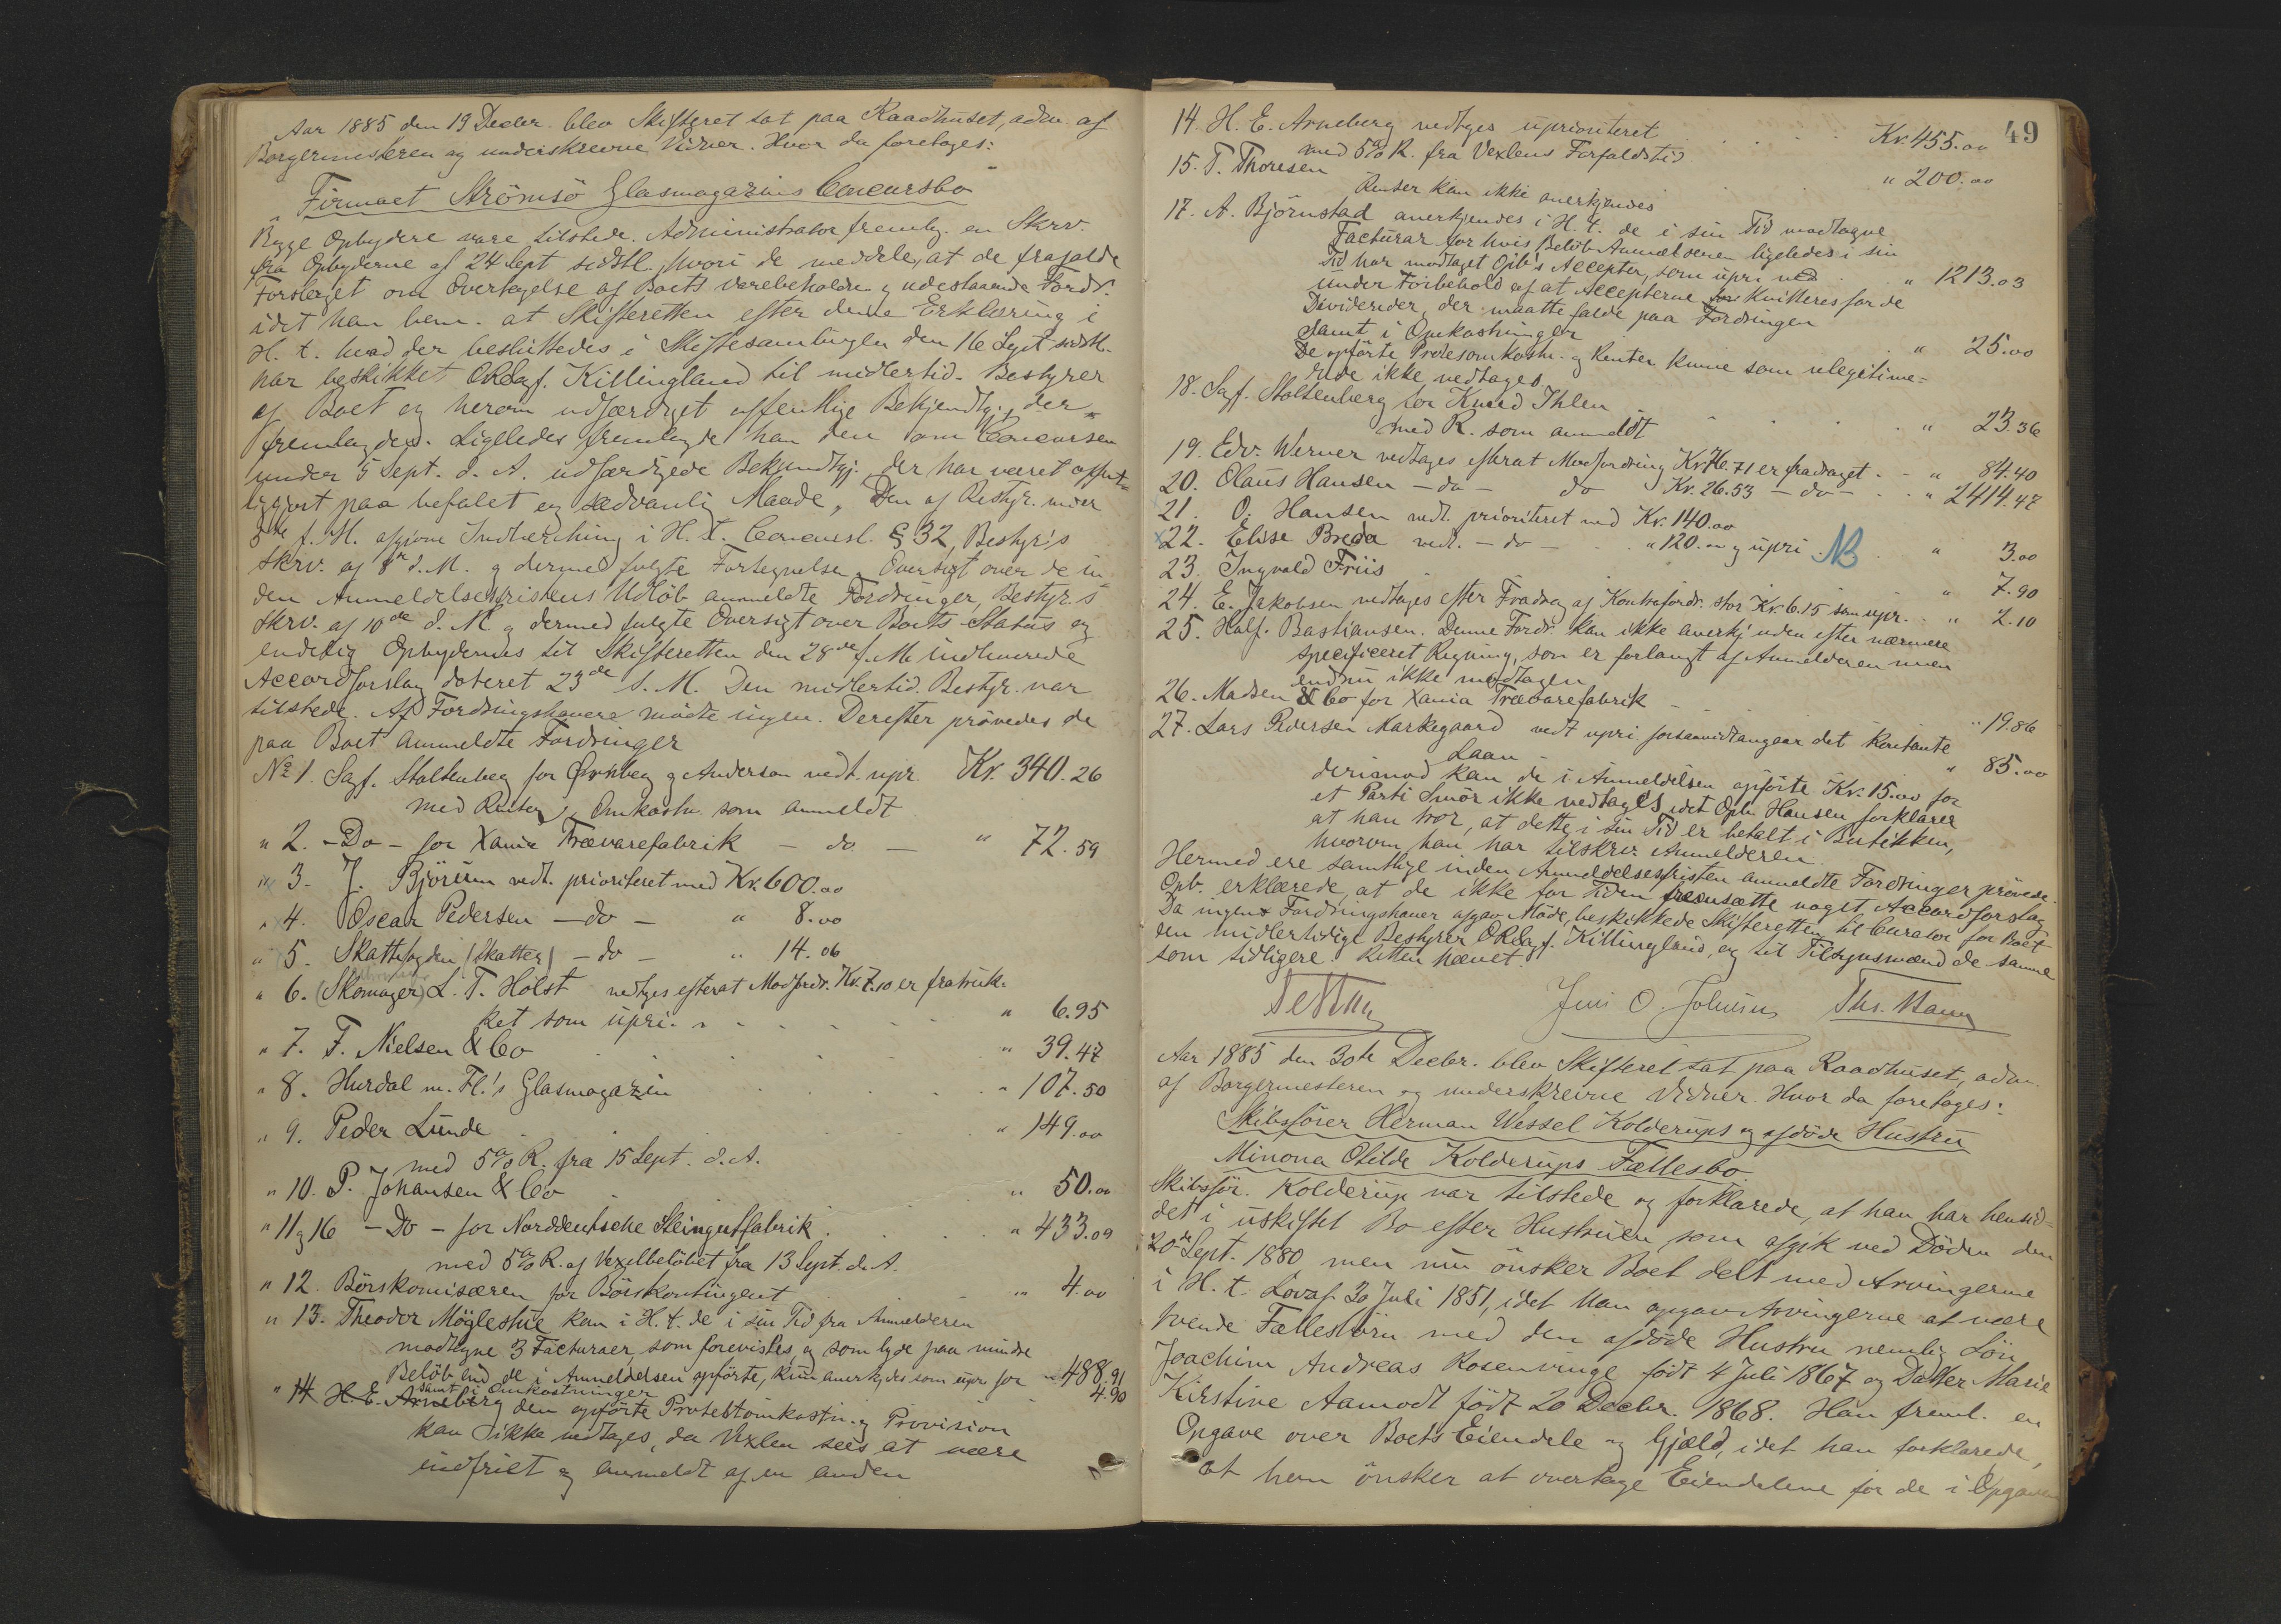 Aar 1885 den 19 Decbr. blev Skifteret sat paa Raadhuset, adm. af
Borgermesteren og underskrevne Vidner. Hvor da foretages:
Firmaet Strömsö Glasmagazins Concursbo
Begge Opbydere vare tilstede. Administrator fremlg. en Skrv.
fra Opbyderne af 24 Sept sidstl., hvori de meddele, at de frafalde
Forslaget om Overtagelse af Boets Varebeholdn. og udestaaende Fordr.
idet han bem. at Skifteretten efter denne Erklæring i
H. t. hvad der besluttedes i Skiftesamlingen den 16 Sept sidstl.
har beskikket ORSagf. Killingland til midlertid. Bestyrer
af Boet og herom udfærdiget offentlige Bekjendtgj., der
fremlagdes. Ligeledes fremlagde han den om Concursen
under 5 Sept. d. A. udfærdigede Bekjendtgj. der har været offent-
liggjort paa befalet og sædvanlig Maade, Den af Bestyr. under
8de f. M. afgivne Indberetning i H. t. Concursl. § 32, Bestyr's
Skrv. af 8de d. M. og dermed fulgte Fortegnelse og Oversigt over de in-
den Anmeldelsesfristens Udløb anmeldte Fordringer, Bestyr.'s
Skrv. af 10de d. M. og dermed fulgte Oversigt over Boets Status og
endelig Opbydernes til Skifteretten den 28de f. M. indleverede
Accordforslag dateret 23de s. M. Den midlertid. Bestyr. var
tilstede. Af Fordringshavere mødte ingen. Derefter prövedes de
paa Boet anmeldte Fordringer
No 1. Sagf. Stoltenberg for Ørnberg & Anderson vedt. upr. Kr. 340.26
med Renter og Omkostn. som anmeldt
" 2. - Do - for Xania Trævarefabrik - do - " 72.59
" 3. J. Björum vedt. prioriteret med Kr. 600.00
" 4. Oscar Pedersen - do - " 8.00
" 5. Skattefogden (Skatter) - do - " 14.06
" 6. (Skomager) L. T. Holst vedtages efterat Modfordr. Kr. 7.10 er fratruk-
ket som upri. " 6.95
" 7. F. Nielsen & Co " 39.47
" 8. Hurdal m. Fl.'s Glasmagazin " 107.50
" 9. Peder Lunde " 149.00
med 5% R. fra 15 Sept. d. A.
" 10. P. Johansen & Co " 50.00
" 11 og 16 - Do - for Norddeutsche Steingutfabrik " 433.09
med 5% R. af Vexelbelöbet fra 13 Sept. d. A.
" 12. Börskomisæren for Börskontingent " 4.00
" 13. Theodor Möglestue kan i H. t. de i sin Tid fra Anmelderen
modtagne 3 Facturaer, som forevistes, og som lyde paa mindre
Belöb end de i Anmeldelsen opførte, kun anerkjdes som upr for " 488.91
samt i Omkostninger 4.90
" 14 H. E. Arneberg den opførte Protestomkostn. og Provision
kan ikke vedtages, da Vexlen sees at være
indfriet og anmeldt af en anden
49
14. H. E. Arneberg vedtages uprioriteret Kr. 455.00
med 5% R. fra Vexlens Forfaldstid
15. T. Thoresen " 200.00
Renter kan ikke anerkjendes
17. A. Björnstad anerkjendes i H. t. de i sin Tid modtagne
Facturar for hvis Belöb Anmelderen ligeledes i sin
Tid har modtaget Opb's Accepter, som upri med " 1213.03
under Forbehold af at Accepterne for Kvitteres for de
Dividender, der maatte falde paa Fordringen
samt i Omkostninger " 25.00
De opførte Procesomkostn. og Renter kunne som ulegitime-
rede ikke vedtages.
18. Sagf. Stoltenberg for Knud Ihlen " 23.36
med R. som anmeldt
19. Edv. Werner vedtages efterat Modfordring Kr. 76.71 er fradraget " 84.40
20. Olaus Hansen - do - do Kr. 26.53 - do - " 2414.47
21. O. Hansen vedt. prioriteret med Kr. 140.00
x22. Elise Breda vedt. - do - " 120.00 og upri NB " 3.00
23. Ingvald Friis " 7.90
24. E. Jakobsen vedtages efter Fradrag af Kontrafordr. stor Kr. 6.15 som upr. " 2.10
25. Half. Bastiansen. Denne Fordr. kan ikke anerkj uden efter nærmere
specificeret Regning, som er forlangt af Anmelderen men
endnu ikke modtagen
26. Madsen & Co for Xania Trævarefabrik " 19.86
27. Lars Pedersen Markegaard vedt upri forsaavidt angaar det kontante
Laan " 85.00
derimod kan de i Anmeldelsen opførte Kr. 15.00 for
et Parti Smør ikke vedtages idet Opb. Hansen forklarer
at han tror, at dette i sin Tid er betalt i Butikken,
hvorom han har tilskrev. Anmelderen.
Hermed ere samtlige inden Anmeldelsesfristen anmeldte Fordringer prövede.
Opb. erklærede, at de ikke for Tiden fremsætte noget Accordforslag
Da ingen Fordringshaver afgav Möde, beskikkede Skifteretten til Curator for Boet
den midlertidige Bestyrer ORSagf. Killingland, og til Tilsynsmænd de samme
som tidligere. Retten hævet.
Jens O. Johnsen Ths.
Aar 1885 den 30te Decbr. blev Skifteret sat paa Raadhuset, adm.
af Borgermesteren og underskrevne Vidner. Hvor da foretages:
Skibsfører Herman Wessel Kolderups og afdöde Hustru
Minona Otilde Kolderups Fællesbo
Skibsför. Kolderup var tilstede og forklarede, at han har hensid-
det i uskiftet Bo efter Hustruen, som afgik ved Döden den
20de Sept. 1880 men nu önsker Boet delt med Arvingerne
i H. t. Lov af 30 Juli 1851, idet han opgav Arvingerne at være
tvende Fællesbörn med den afdöde Hustru nemlig Sön
Joachim Andreas Rosenvinge født 4 Juli 1867 og Datter Marie
Kirstine Aamodt født 20 Decbr. 1868. Han freml. en
Opgave over Boets Eiendele og Gjæld, idet han forklarede,
at han önsker at overtage Eiendelene for de i Opgaven